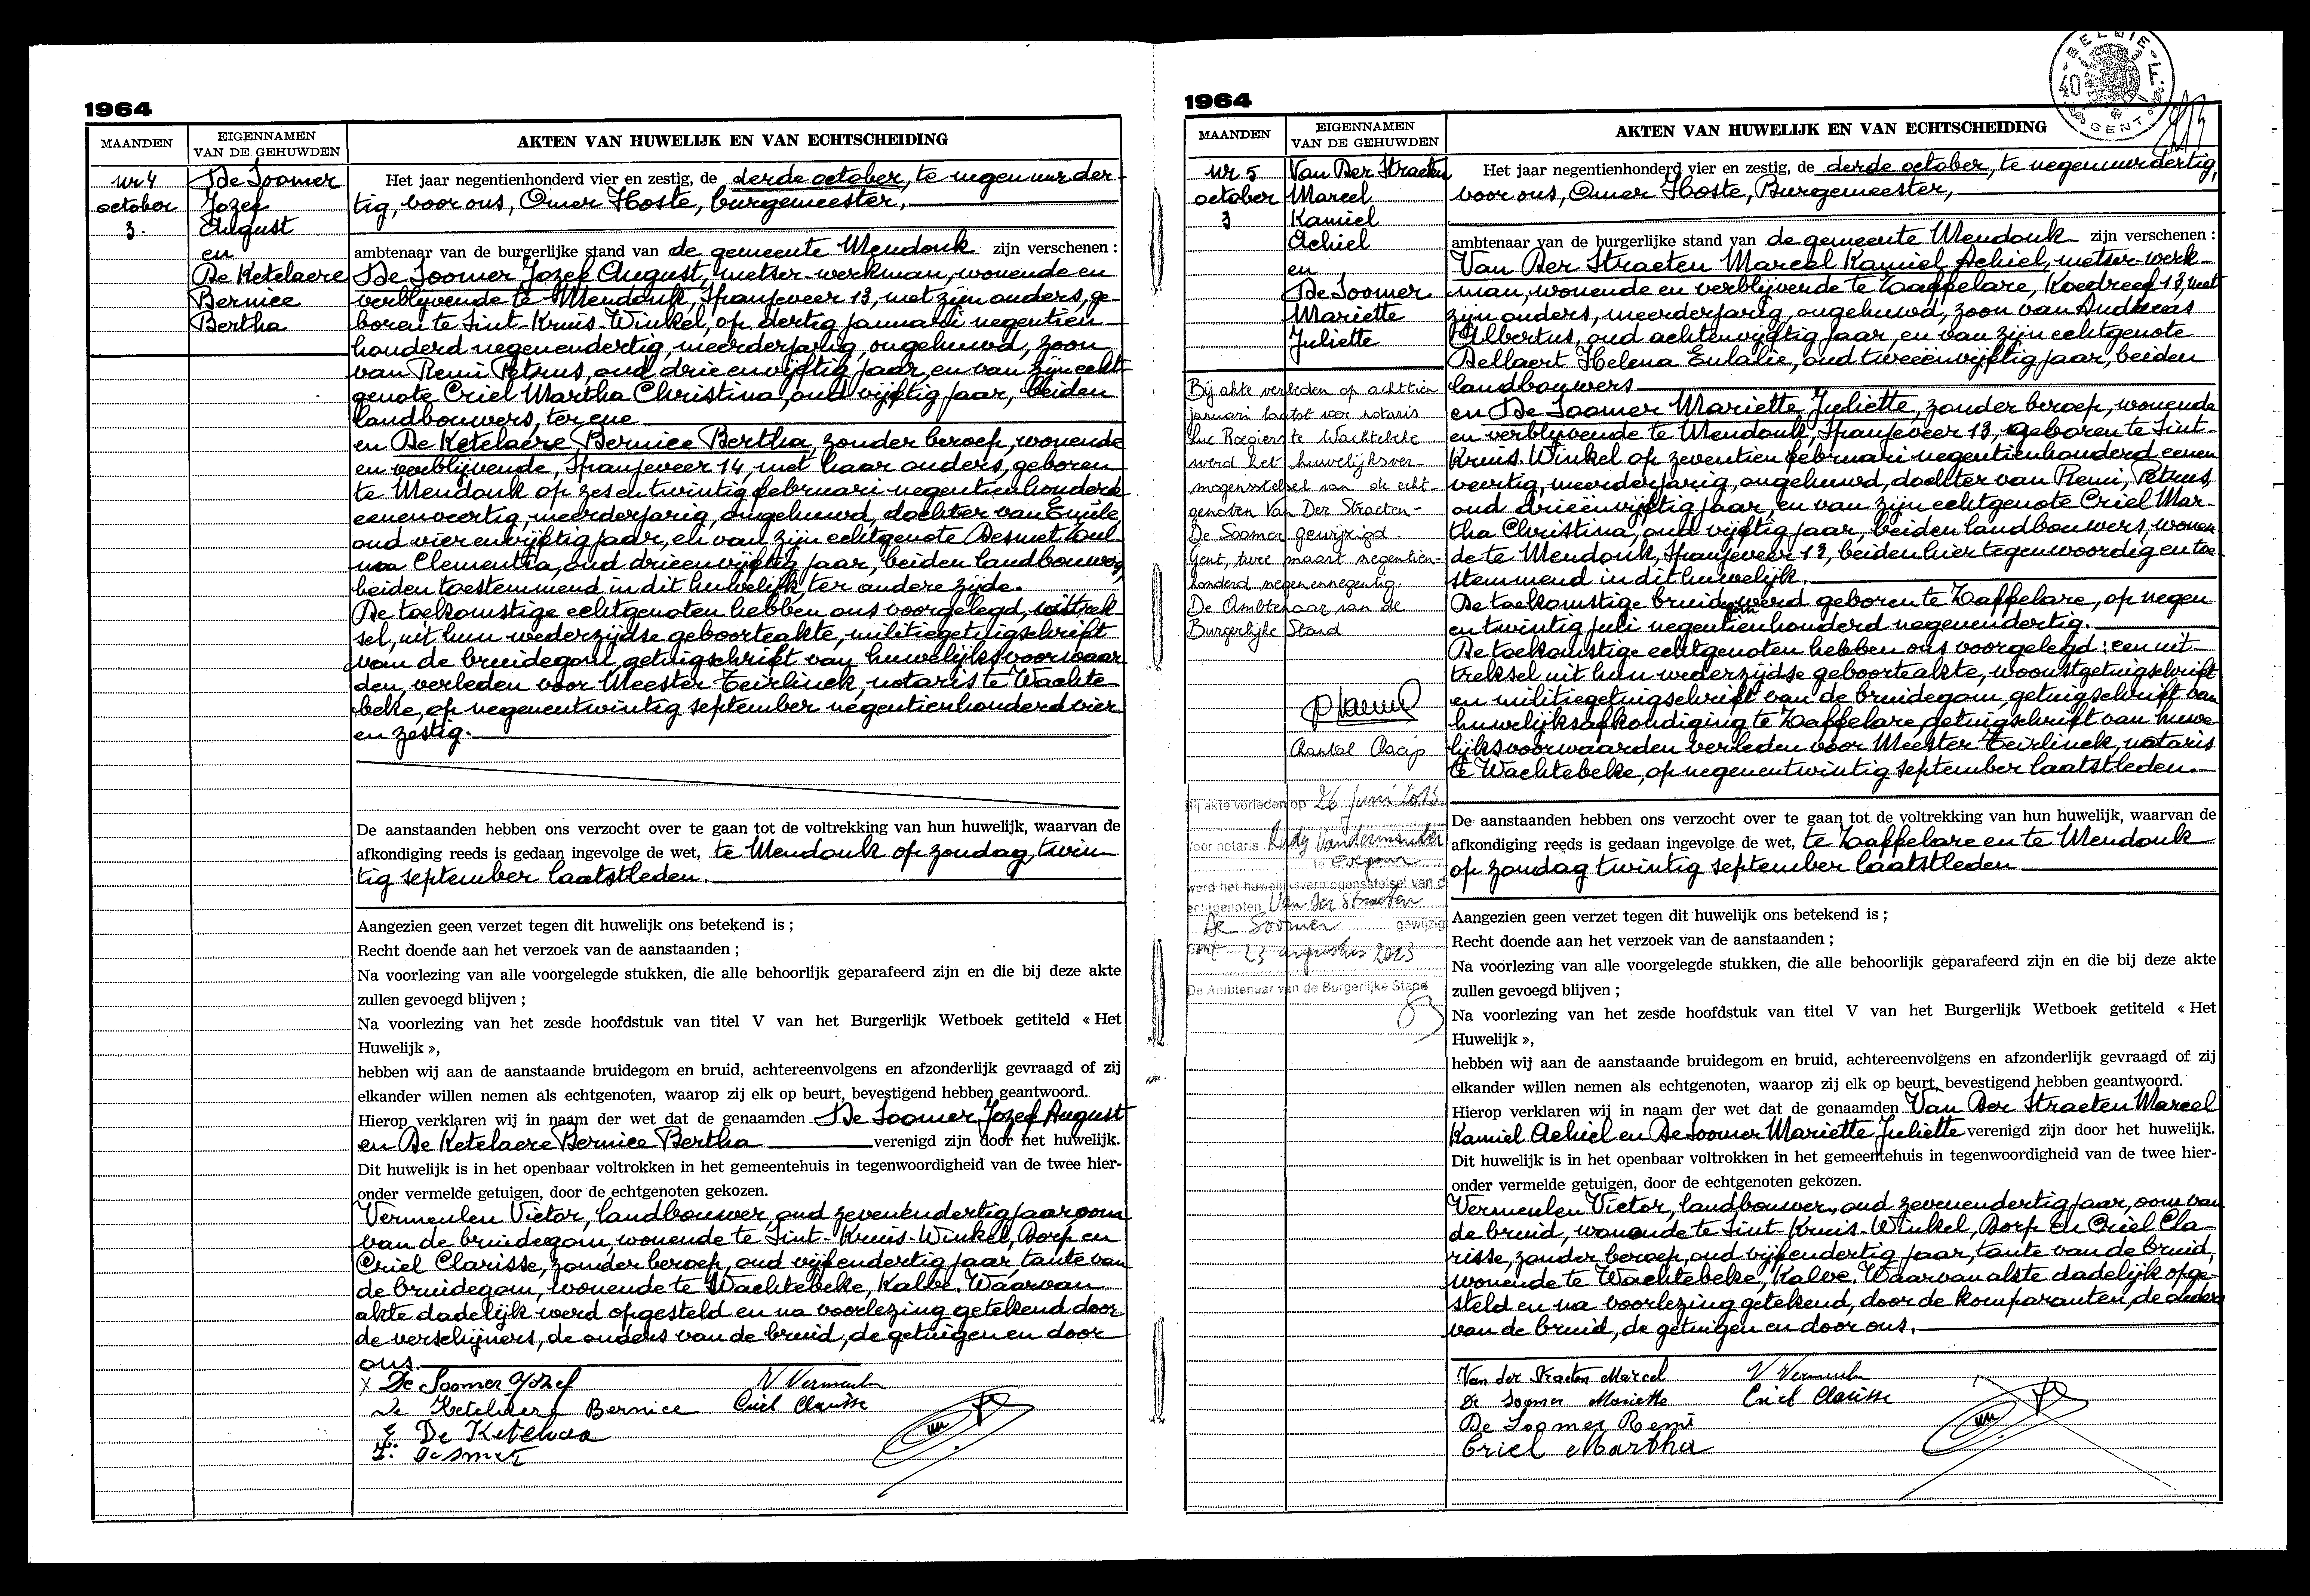 1964
MAANDEN
EIGENNAMEN
VAN DE GEHUWDEN
AKTEN VAN HUWELIJK EN VAN ECHTSCHEIDING
nr 4
october
3.
De Soomer
Jozef
August
en
De Ketelaere
Bernice
Bertha
Het jaar negentienhonderd vier en zestig, de derde october, te negen uur der-
tig, voor ons, Omer Hoste, burgemeester,
ambtenaar van de burgerlijke stand van de gemeente Mendonk zijn verschenen :
De Soomer Jozef August, metser-werkman, wonende en
verblijvende te Mendonk, Spanjeveer 13, met zijn ouders, ge-
boren te Sint-Kruis-Winkel, op dertig januari negentien
honderd negenendertig, meerderjarig, ongehuwd, zoon
van Remi Petrus, oud drieenvijftig jaar, en van zijn echt-
genote Criel Martha Christina, oud vijftig jaar, beiden
landbouwers, ter ene
en De Ketelaere Bernice Bertha, zonder beroep, wonende
en verblijvende, Spanjeveer 14, met haar ouders, geboren
te Mendonk op zesentwintig februari negentienhonderd
eenenveertig, meerderjarig, ongehuwd, dochter van Emile,
oud vierenvijftig jaar, en van zijn echtgenote Desmet Zoul-
ma Clementia, oud drieenvijftig jaar, beiden landbouwers,
beiden toestemmend in dit huwelijk, ter andere zijde.
De toekomstige echtgenoten hebben ons voorgelegd, uittrek-
sel, uit hun wederzijdse geboorteakte, militiegetuigschrift
van de bruidegom, getuigschrift van huwelijksvoorwaar
den, verleden voor Meester Teirlinck, notaris te Wachte
beke, op negenentwintig september negentienhonderd vier
en zestig.
De aanstaanden hebben ons verzocht over te gaan tot de voltrekking van hun huwelijk, waarvan de
afkondiging reeds is gedaan ingevolge de wet, te Mendonk op zondag, twin-
tig september laatstleden.
Aangezien geen verzet tegen dit huwelijk ons betekend is ;
Recht doende aan het verzoek van de aanstaanden ;
Na voorlezing van alle voorgelegde stukken, die alle behoorlijk geparafeerd zijn en die bij deze akte
zullen gevoegd blijven ;
Na voorlezing van het zesde hoofdstuk van titel V van het Burgerlijk Wetboek getiteld « Het
Huwelijk »,
hebben wij aan de aanstaande bruidegom en bruid, achtereenvolgens en afzonderlijk gevraagd of zij
elkander willen nemen als echtgenoten, waarop zij elk op beurt, bevestigend hebben geantwoord.
Hierop verklaren wij in naam der wet dat de genaamden De Soomer Jozef August
en De Ketelaere Bernice Bertha verenigd zijn door het huwelijk.
Dit huwelijk is in het openbaar voltrokken in het gemeentehuis in tegenwoordigheid van de twee hier-
onder vermelde getuigen, door de echtgenoten gekozen.
Vermeulen Victor, landbouwer, oud zevenendertig jaar, oom
van de bruidegom, wonende te Sint-Kruis-Winkel, Dorp en
Criel Clarisse, zonder beroep, oud vijfendertig jaar, tante van
de bruidegom, wonende te Wachtebeke, Kalve. Waarvan
akte dadelijk werd opgesteld en na voorlezing getekend door
de verschijners, de ouders van de bruid, de getuigen en door
ons.
x De Soomer Jozef V Vermeulen
De Ketelaere Bernice Criel Clarisse
E. De Ketelaere
Z. Desmet
1964
BELGIE
40 F.
GENT
MAANDEN
EIGENNAMEN
VAN DE GEHUWDEN
AKTEN VAN HUWELIJK EN VAN ECHTSCHEIDING
nr 5
october
3
Van Der Straeten
Marcel
Kamiel
Achiel
en
De Soomer
Mariette
Juliette
Bij akte verleden op achttien
januari laatst voor notaris
Luc Rogiers te Wachtebeke
werd het huwelijksver-
mogensstelsel van de echt-
genoten Van Der Straeten-
De Soomer gewijzigd.
Gent, twee maart negentien-
honderd negenennegentig.
De Ambtenaar van de
Burgerlijke Stand
Bij akte verleden op 26 juni 2013
voor notaris Rudy Vandermander
te Evergem
werd het huwelijksvermogensstelsel van d
echtgenoten Van der Straeten
De Soomer gewijzig
Gent 23 augustus 2013
De Ambtenaar van de Burgerlijke Stand
Het jaar negentienhonderd vier en zestig, de derde october, te negen uur dertig,
voor ons, Omer Hoste, Burgemeester,
ambtenaar van de burgerlijke stand van de gemeente Mendonk zijn verschenen :
Van Der Straeten Marcel Kamiel Achiel, metser-werk-
man, wonende en verblijvende te Zaffelare, Koedreef 13, met
zijn ouders, meerderjarig, ongehuwd, zoon van Andreas
Albertus, oud achtenvijftig jaar, en van zijn echtgenote
Dellaert Helena Eulalie, oud tweeënvijftig jaar, beiden
landbouwers
en De Soomer Mariette Juliette, zonder beroep, wonende
en verblijvende te Mendonk, Spanjeveer 13, geboren te Sint-
Kruis-Winkel op zeventien februari negentienhonderd eenen
veertig, meerderjarig, ongehuwd, dochter van Remi, Petrus
oud drieënvijftig jaar, en van zijn echtgenote Criel Mar-
tha Christina, oud vijftig jaar, beiden landbouwers, wonen
de te Mendonk, Spanjeveer 13, beiden hier tegenwoordig en toe
stemmend in dit huwelijk.
De toekomstige bruidegom werd geboren te Zaffelare, op negen
entwintig juli negentienhonderd negenendertig.
De toekomstige echtgenoten hebben ons voorgelegd : een uit-
treksel uit hun wederzijdse geboorteakte, woonstgetuigschrift
en militiegetuigschrift van de bruidegom, getuigschrift van
huwelijksafkondiging te Zaffelare, getuigschrift van huwe-
lijksvoorwaarden verleden voor Meester Teirlinck, notaris
te Wachtebeke, op negenentwintig september laatstleden.
De aanstaanden hebben ons verzocht over te gaan tot de voltrekking van hun huwelijk, waarvan de
afkondiging reeds is gedaan ingevolge de wet, te Zaffelare en te Mendonk
op zondag twintig september laatstleden
Aangezien geen verzet tegen dit huwelijk ons betekend is ;
Recht doende aan het verzoek van de aanstaanden ;
Na voorlezing van alle voorgelegde stukken, die alle behoorlijk geparafeerd zijn en die bij deze akte
zullen gevoegd blijven ;
Na voorlezing van het zesde hoofdstuk van titel V van het Burgerlijk Wetboek getiteld « Het
Huwelijk »,
hebben wij aan de aanstaande bruidegom en bruid, achtereenvolgens en afzonderlijk gevraagd of zij
elkander willen nemen als echtgenoten, waarop zij elk op beurt, bevestigend hebben geantwoord.
Hierop verklaren wij in naam der wet dat de genaamden Van Der Straeten Marcel
Kamiel Achiel en De Soomer Mariette Juliette verenigd zijn door het huwelijk.
Dit huwelijk is in het openbaar voltrokken in het gemeentehuis in tegenwoordigheid van de twee hier-
onder vermelde getuigen, door de echtgenoten gekozen.
Vermeulen Victor, landbouwer, oud zevenendertig jaar, oom van
de bruid, wonende te Sint-Kruis-Winkel, Dorp en Criel Cla-
risse, zonder beroep, oud vijfendertig jaar, tante van de bruid,
wonende te Wachtebeke, Kalve. Waarvan akte dadelijk opge-
steld en na voorlezing getekend, door de komparanten, de ouders
van de bruid, de getuigen en door ons.
Van der Straeten Marcel V Vermeulen
De Soomer Mariette Criel Clarisse
De Soomer Remi
Criel Martha